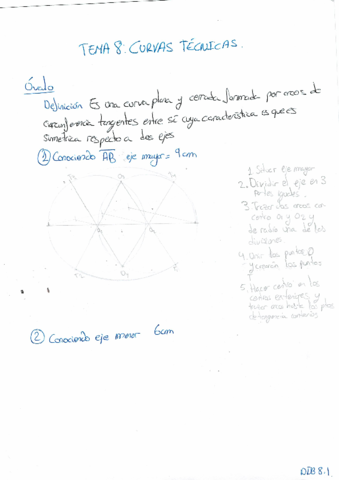 TEMA 8. CURVAS TÉCNICAS.
Óvalo
Definición Es una curva plana y cerrada formada por arcos de
circunferencia tangentes entre sí cuya característica es que es
simetrica respecto a dos ejes
① Conociendo AB eje mayor = 9cm
1. Situar eje mayor
2. Dividir el eje en 3
partes iguales.
3. Trazar dos arcos con
centro O1 y O2 y
de radio una de las
divisiones
4. los puntos O
y los puntos
5. Hacer centro en los
y
trazar arco hasta los ptos
de tangencia
② Conociendo eje menor 6cm
DIB 8.1